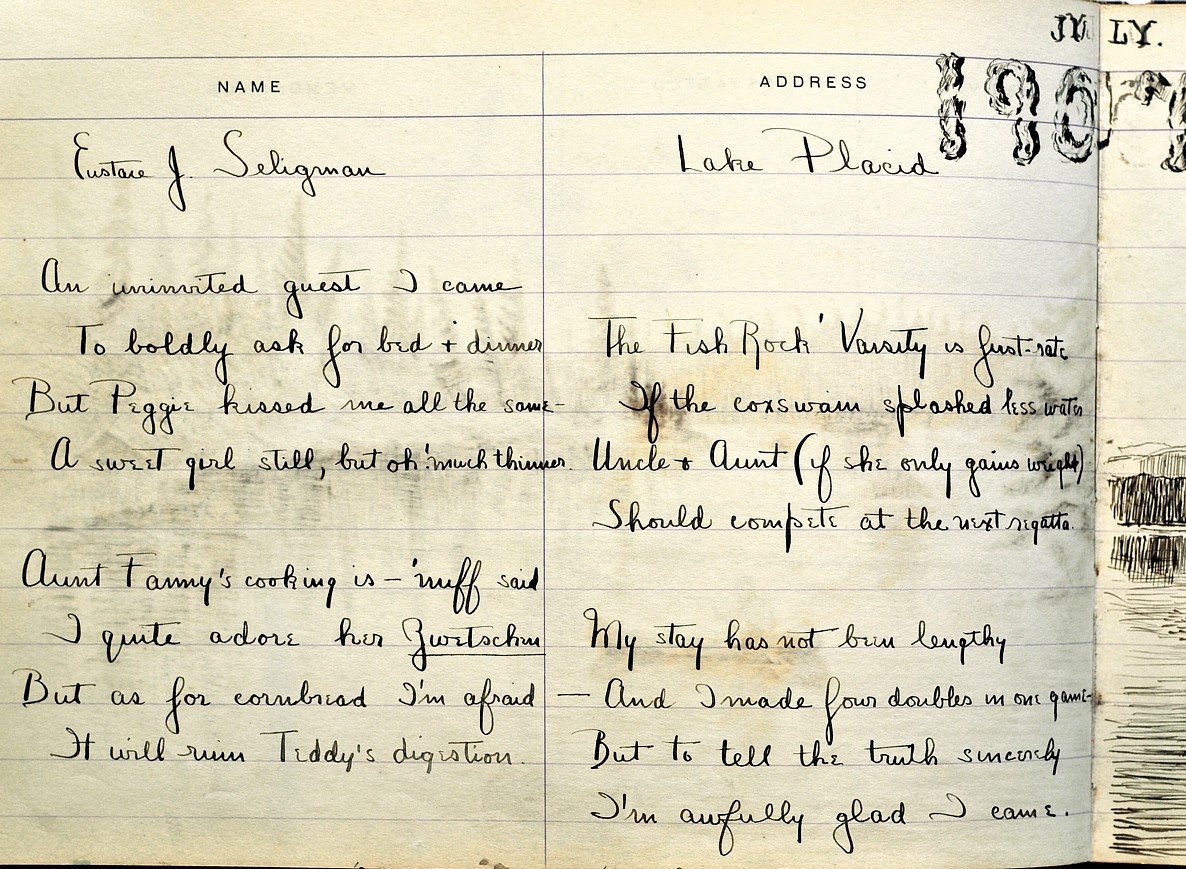 JULY.
NAME
ADDRESS
190
Eustace J. Seligman
Lake Placid
An uninvited guest I came
To boldly ask for bed + dinner
But Peggie kissed me all the same–
A sweet girl still, but oh! much thinner.
Aunt Fanny's cooking is – 'nuff said
I quite adore her Zwetschen
But as for cornbread I'm afraid
It will ruin Teddy's digestion.
The Fish Rock 'Varsity is first-rate
If the coxswain splashed less water
Uncle + Aunt (if she only gains weight)
Should compete at the next regatta.
My stay has not been lengthy
— And I made four doubles in one game–
But to tell the truth sincerely
I'm awfully glad I came.